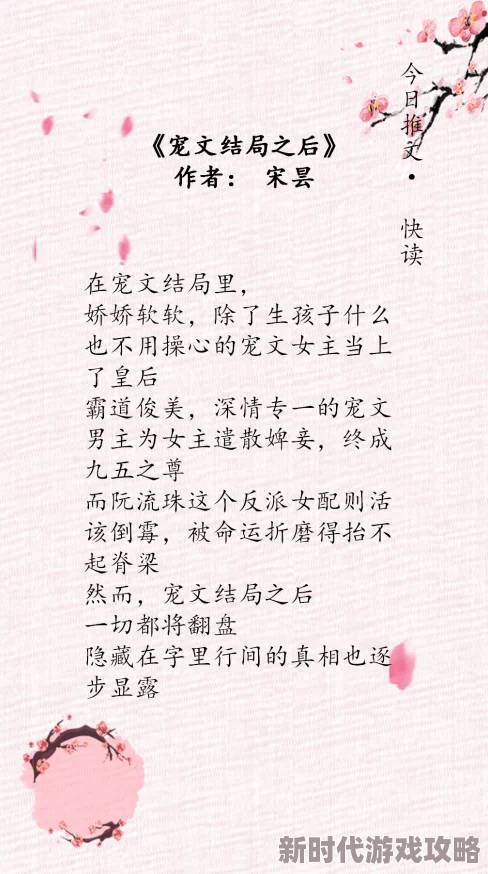 今日推文· 快读
《宠文结局之后》
作者： 宋昙
在宠文结局里，
娇娇软软，除了生孩子什么
也不用操心的宠文女主当上
了皇后
霸道俊美，深情专一的宠文
男主为女主遣散婢妾，终成
九五之尊
而阮流珠这个反派女配则活
该倒霉，被命运折磨得抬不
起脊梁
然而，宠文结局之后
一切都将翻盘
隐藏在字里行间的真相也逐
步显露
新时代游戏攻略